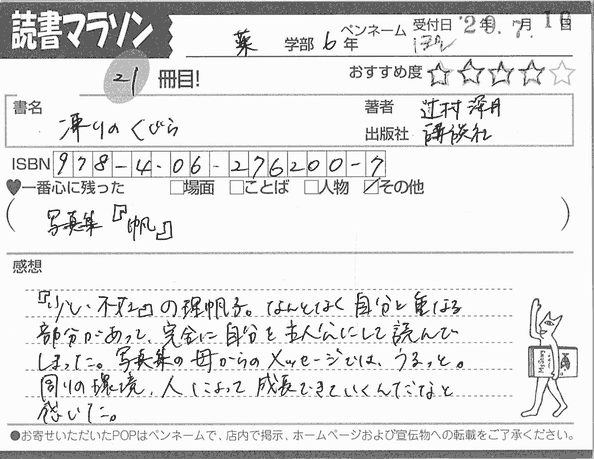 読書マラソン
薬 学部 6年
ペンネーム
受付日 '20年.7.月16日
21 冊目!
おすすめ度 ☆☆☆☆☆
書名
凍りのくじら
著者 辻村深月
出版社 講談社
ISBN 978-4-06-276200-7
♥一番心に残った □場面 □ことば □人物 ☑その他
( 写真集『帆』 )
感想
『少し・不在』の理帆子。なんとなく自分と重なる
部分があって、完全に自分を主人公にして読んで
しまった。写真集の母からのメッセージでは、うるっと。
周りの環境、人によって成長できていくんだなと
感じた。
●お寄せいただいたPOPはペンネームで、店内で掲示、ホームページおよび宣伝物への転載をご了承ください。